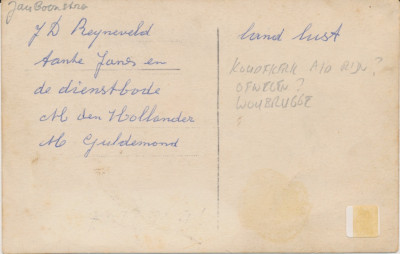 Jan Boonstra
J D Reyneveld
tante Jans en
de dienstbode
M den Hollander
M Guldemond
land lust
KOUDEKERK A/D RIJN?
?
WOUBRUGGE
?